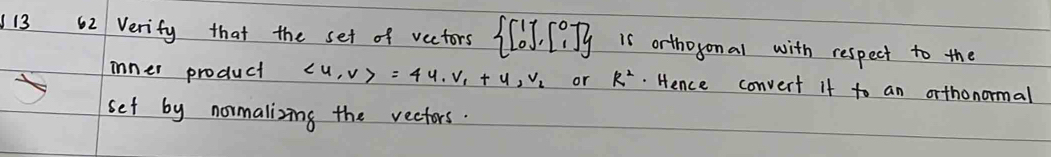 § 13 62 Verify that the set of vectors {[1 0], [0 1]} is orthogonal with respect to the
inner product <u,v> = 4u₁v₁ + u₂v₂ or R². Hence convert it to an orthonormal
set by normalizing the vectors.